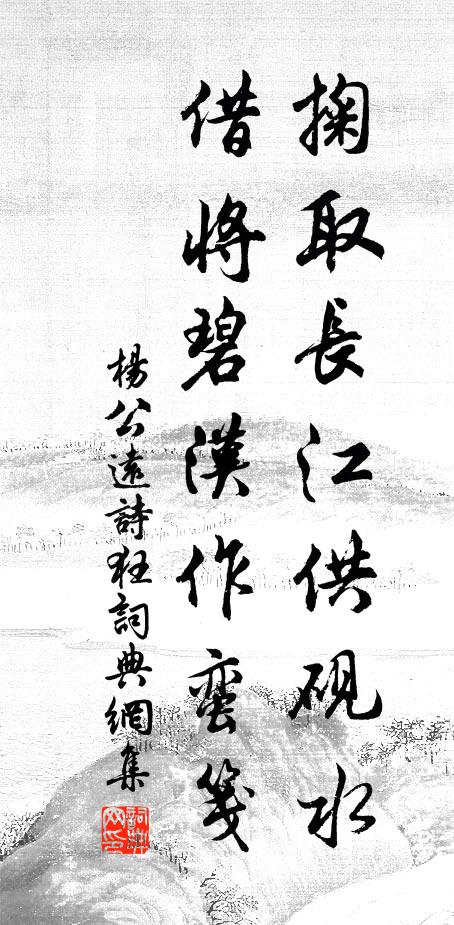 掬取長江供硯水
借將碧漢作蛮箋
楊公遠詩狂詞典網集